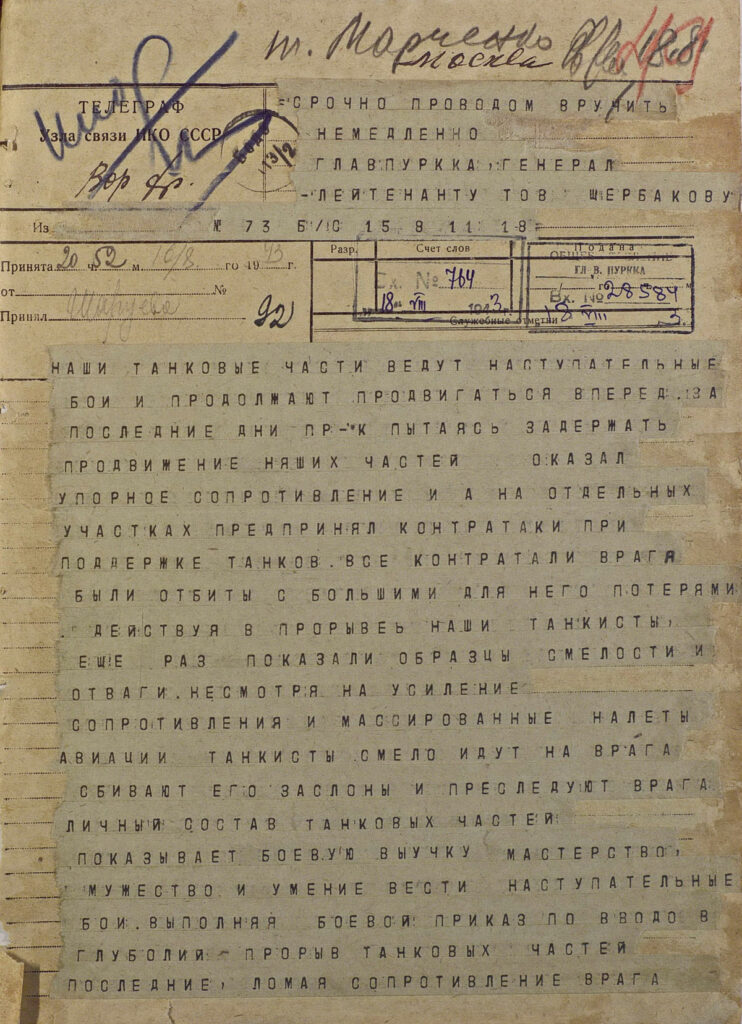 т. Марченко
Москва
18.8
ТЕЛЕГРАФ
Узла связи НКО СССР
=СРОЧНО ПРОВОДОМ ВРУЧИТЬ
НЕМЕДЛЕННО
ГЛАВПУРККА, ГЕНЕРАЛ
-ЛЕЙТЕНАНТУ ТОВ ЩЕРБАКОВУ
Из № 73 Б/С 15 8 11 18=
Принята 20 ч. 52 м. 16/8 го 1943 г.
от №
Принял 92
Разр.
Счет слов
Подана
Вх. № 764
18 VIII 1943.
Служебные отметки
ГЛ В. ПУРККА
Вх. № 28584
18 VIII 3.
НАШИ ТАНКОВЫЕ ЧАСТИ ВЕДУТ НАСТУПАТЕЛЬНЫЕ
БОИ И ПРОДОЛЖАЮТ ПРОДВИГАТЬСЯ ВПЕРЕД.ЗА
ПОСЛЕДНИЕ ДНИ ПР-К ПЫТАЯСЬ ЗАДЕРЖАТЬ
ПРОДВИЖЕНИЕ НЯШИХ ЧАСТЕЙ ОКАЗАЛ
УПОРНОЕ СОПРОТИВЛЕНИЕ И А НА ОТДЕЛЬНЫХ
УЧАСТКАХ ПРЕДПРИНЯЛ КОНТРАТАКИ ПРИ
ПОДДЕРЖКЕ ТАНКОВ.ВСЕ КОНТРАТАЛИ ВРАГЯ
БЫЛИ ОТБИТЫ С БОЛЬШИМИ ДЛЯ НЕГО ПОТЕРЯМИ
. ДЕЙСТВУЯ В ПРОРЫВЕЬ НАШИ ТАНКИСТЫ,
ЕЩЕ РАЗ ПОКАЗАЛИ ОБРАЗЦЫ СМЕЛОСТИ И
ОТВАГИ.НЕСМОТРЯ НА УСИЛЕНИЕ
СОПРОТИВЛЕНИЯ И МАССИРОВАННЫЕ НАЛЕТЫ
АВИАЦИИ ТАНКИСТЫ СМЕЛО ИДУТ НА ВРАГА
СБИВАЮТ ЕГО ЗАСЛОНЫ И ПРЕСЛЕДУЮТ ВРАГА.
ЛИЧНЫЙ СОСТАВ ТАНКОВЫХ ЧАСТЕЙ
ПОКАЗЫВАЕТ БОЕВУЮ ВЫУЧКУ МАСТЕРСТВО,
МУЖЕСТВО И УМЕНИЕ ВЕСТИ НАСТУПАТЕЛЬНЫЕ
БОИ.ВЫПОЛНЯЯ БОЕВОЙ ПРИКАЗ ПО ВВОДО В
ГЛУБОЛИЙ - ПРОРЫВ ТАНКОВЫХ ЧАСТЕЙ
ПОСЛЕДНИЕ, ЛОМАЯ СОПРОТИВЛЕНИЕ ВРАГА